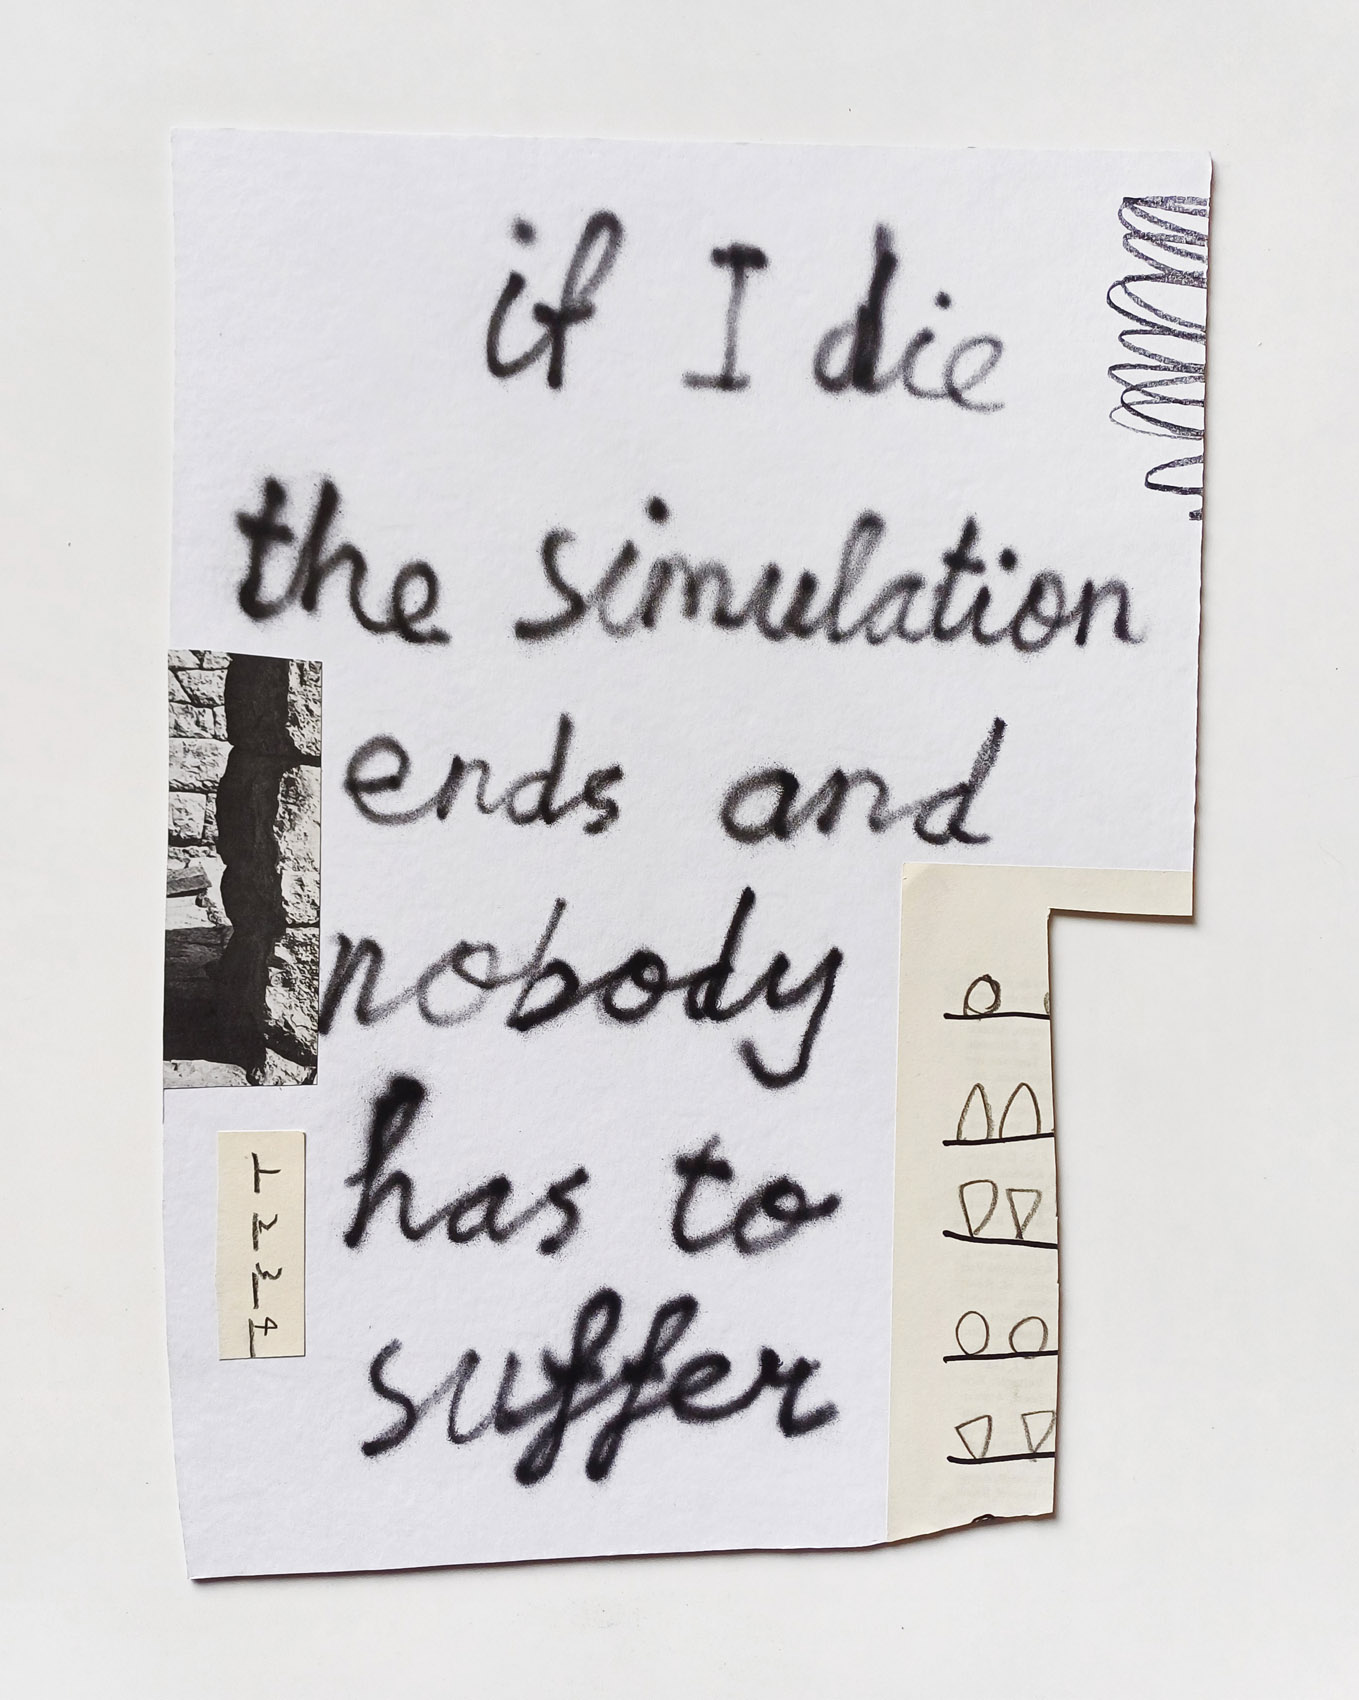 if I die
the simulation
ends and
nobody
has to
suffer